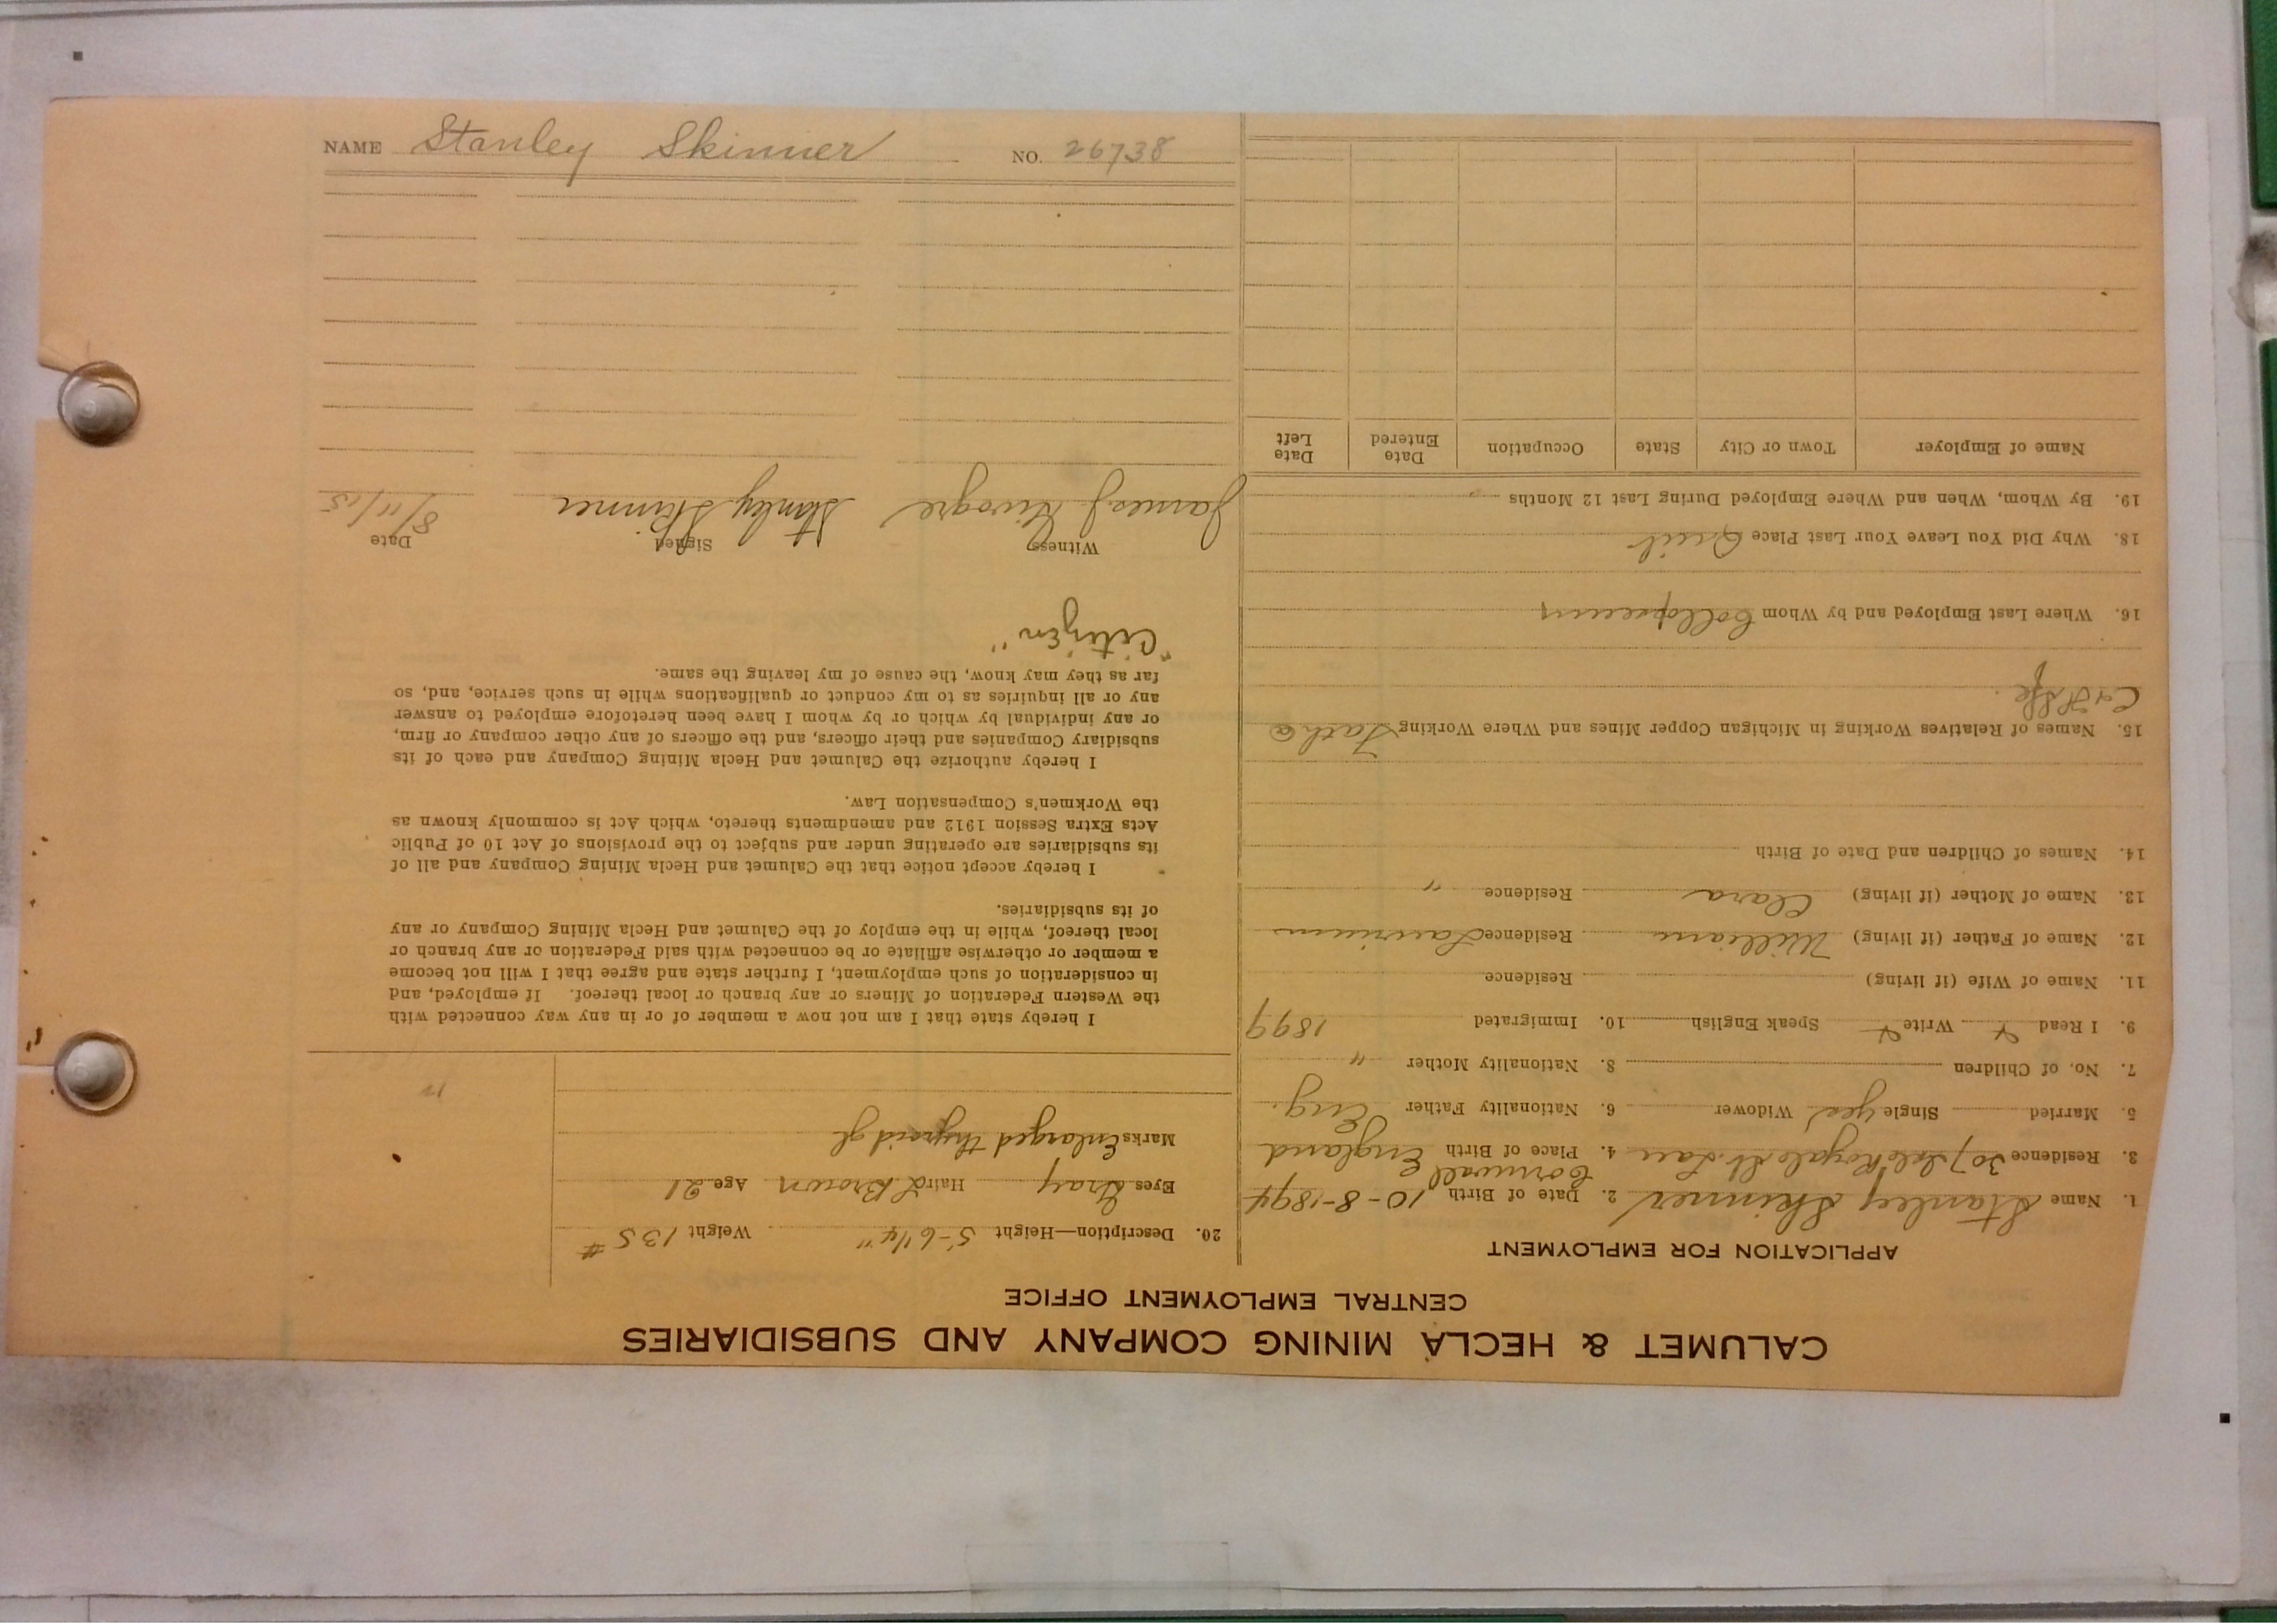 NAME Stanley Skinner NO. 26738
CALUMET & HECLA MINING COMPANY AND SUBSIDIARIES
CENTRAL EMPLOYMENT OFFICE
APPLICATION FOR EMPLOYMENT
1. Name Stanley Skinner 2. Date of Birth 10-8-1894
3. Residence 307 Isle Royale St. Lau 4. Place of Birth Cornwall England
5. Married Single Yes Widower 6. Nationality Father Eng.
7. No. of Children 8. Nationality Mother "
9. I Read Y Write Y Speak English 10. Immigrated 1899
11. Name of Wife (if living) Residence
12. Name of Father (if living) William Residence Laurium
13. Name of Mother (if living) Clara Residence "
14. Names of Children and Date of Birth
15. Names of Relatives Working in Michigan Copper Mines and Where Working Fath @
C & H
16. Where Last Employed and by Whom
18. Why Did You Leave Your Last Place Quit
19. By Whom, When and Where Employed During Last 12 Months
Name of Employer Town or City State Occupation Date Entered Date Left
20. Description—Height 5-6 1/4" Weight 135 #
Eyes Gray Hair L Brown Age 21
Marks Enlarged thyroid gl
I hereby state that I am not now a member of or in any way connected with
the Western Federation of Miners or any branch or local thereof. If employed, and
in consideration of such employment, I further state and agree that I will not become
a member or otherwise affiliate or be connected with said Federation or any branch or
local thereof, while in the employ of the Calumet and Hecla Mining Company or any
of its subsidiaries.
I hereby accept notice that the Calumet and Hecla Mining Company and all of
its subsidiaries are operating under and subject to the provisions of Act 10 of Public
Acts Extra Session 1912 and amendments thereto, which Act is commonly known as
the Workmen's Compensation Law.
I hereby authorize the Calumet and Hecla Mining Company and each of its
subsidiary Companies and their officers, and the officers of any other company or firm,
or any individual by which or by whom I have been heretofore employed to answer
any or all inquiries as to my conduct or qualifications while in such service, and, so
far as they may know, the cause of my leaving the same.
"Citizen"
Witness Signed Date
James J Stanley Skinner 8/11/15